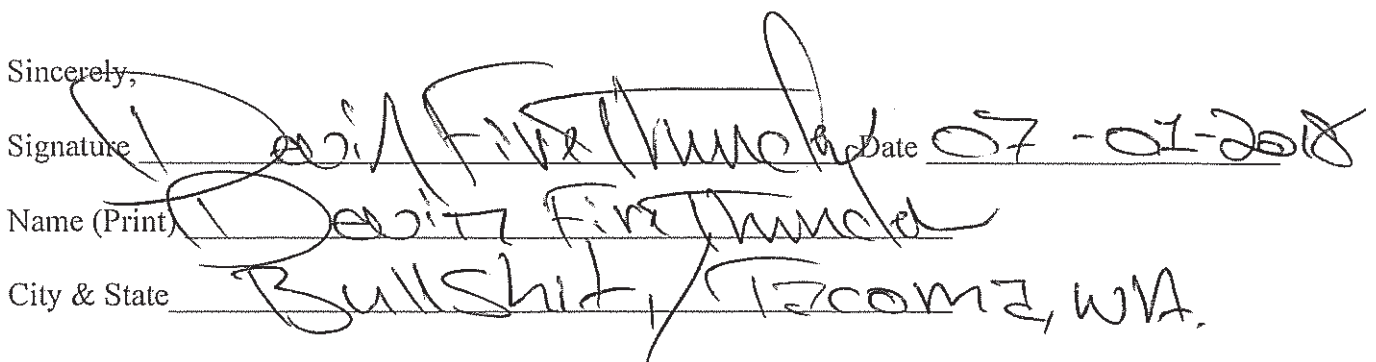 Sincerely,
Signature David FireThunder Date 07-01-2018
Name (Print) David FireThunder
City & State Bullshit, Tacoma, WA.